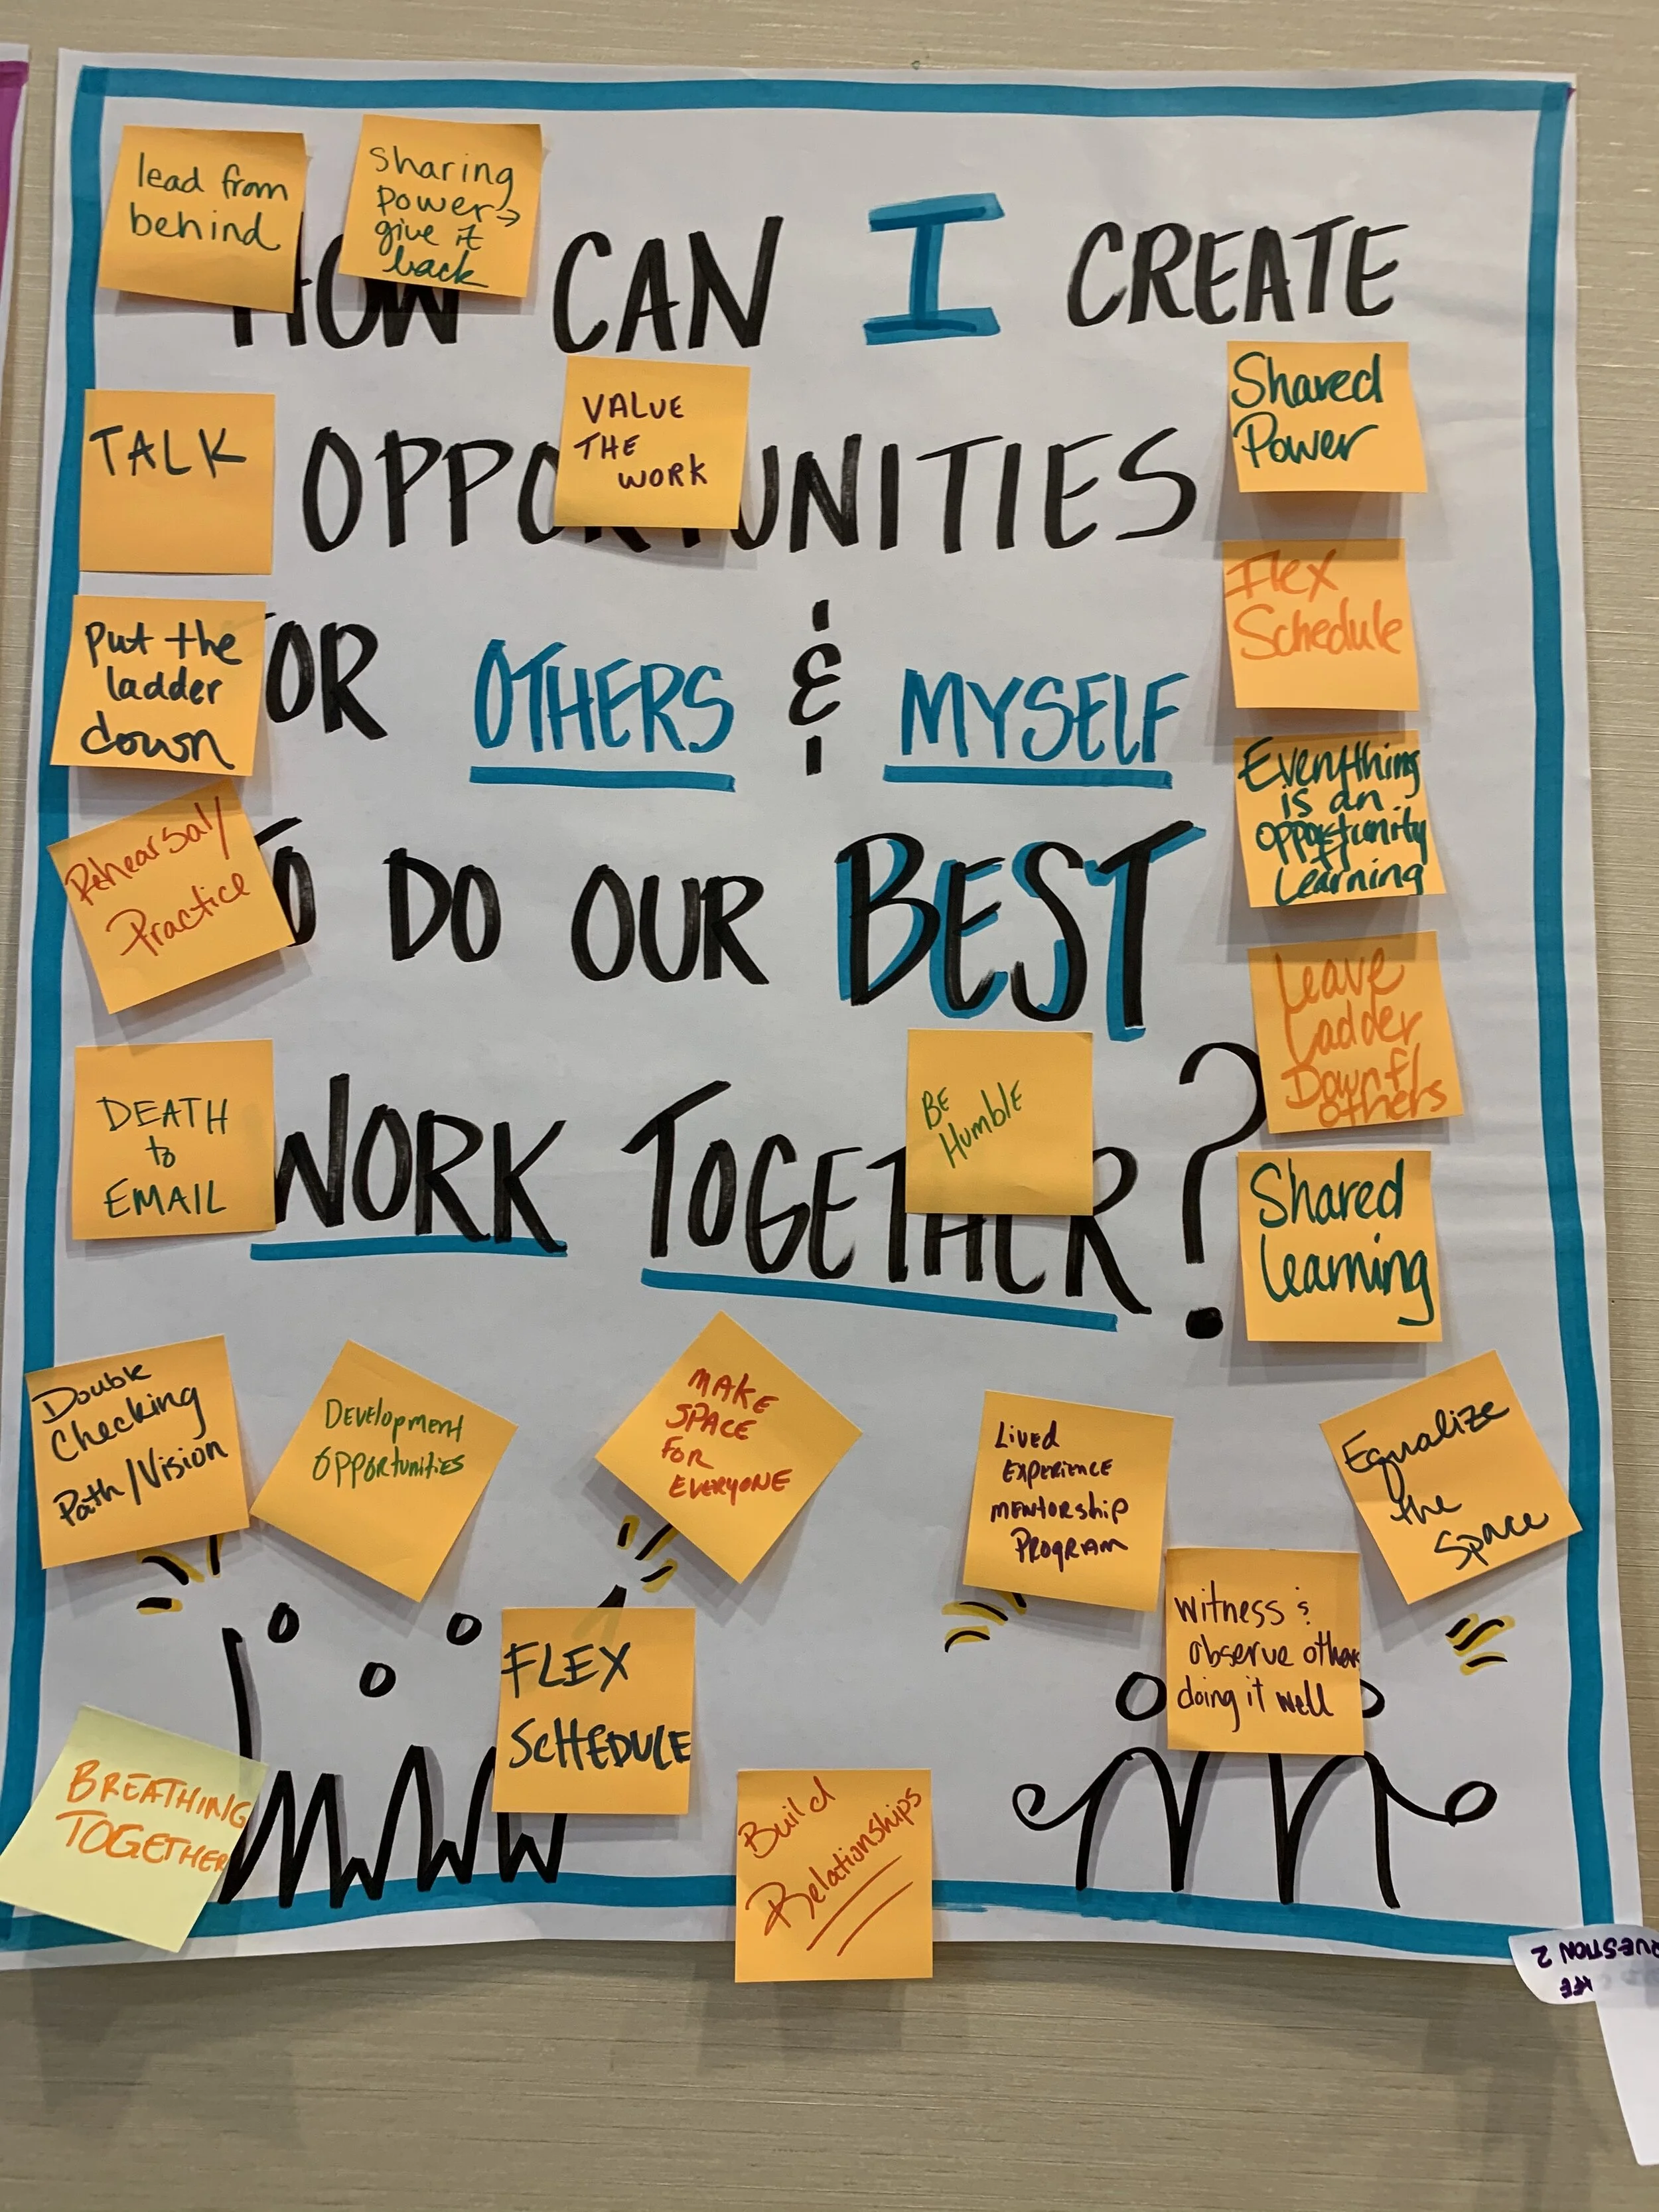 lead from
behind
Sharing
power→
give it
back
HOW CAN I CREATE
TALK
VALUE
THE
WORK
Shared
Power
OPPORTUNITIES
Flex
Schedule
put the
ladder
down
FOR OTHERS & MYSELF
Everything
is an
opportunity
f/
Learning
Rehearsal/
Practice
TO DO OUR BEST
Leave
Ladder
Down f/
others
DEATH
to
EMAIL
BE
Humble
WORK TOGETHER?
Shared
Learning
Double
Checking
Path/Vision
Development
Opportunities
MAKE
SPACE
FOR
EVERYONE
Lived
Experience
Mentorship
Program
Equalize
the
Space
FLEX
SCHEDULE
Witness &
observe others
doing it well
BREATHING
TOGETHER
Build
Relationships
QUESTION 2